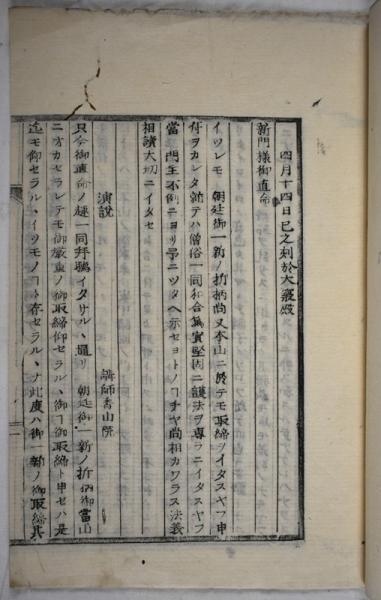 四月十四日巳之刻於大寢殿
新門様御直命
イツレモ 朝廷御一新ノ折柄尚又本山ニ於テモ取締ヲイタスヤフ申
付ヲカレタ就テハ僧俗一同和合爲實堅固ニ護法ヲ専ラニイタスヤフ
當 門主不例ニヨリ予ニツタヘ示セヨトノコチヤ尚相カワラス法義
相讀大切ニイタセ
演説 講師香山院
只今御直命ノ趣一同拜聽イタサル丶通リ 朝廷御一新ノ折柄御當山
ニオカセラレテモ御嚴重ノ御取締仰セラル丶御取締ト申セハ是
迄モ仰セラル丶イツモノコト存セラル丶ナ此度ハ御一新ノ御取締其